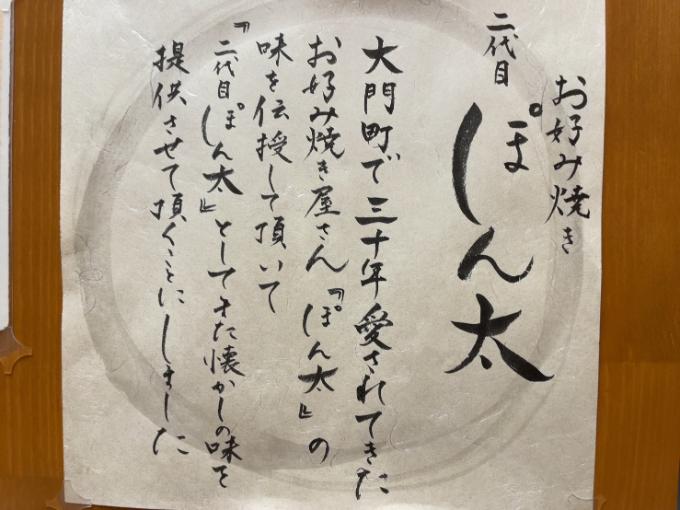 お好み焼き
二代目
ぽん太
大門町で三十年愛されてきた
お好み焼き屋さん『ぽん太』の
味を伝授して頂いて
『二代目ぽん太』としてまた懐かしの味を
提供させて頂くことにしました